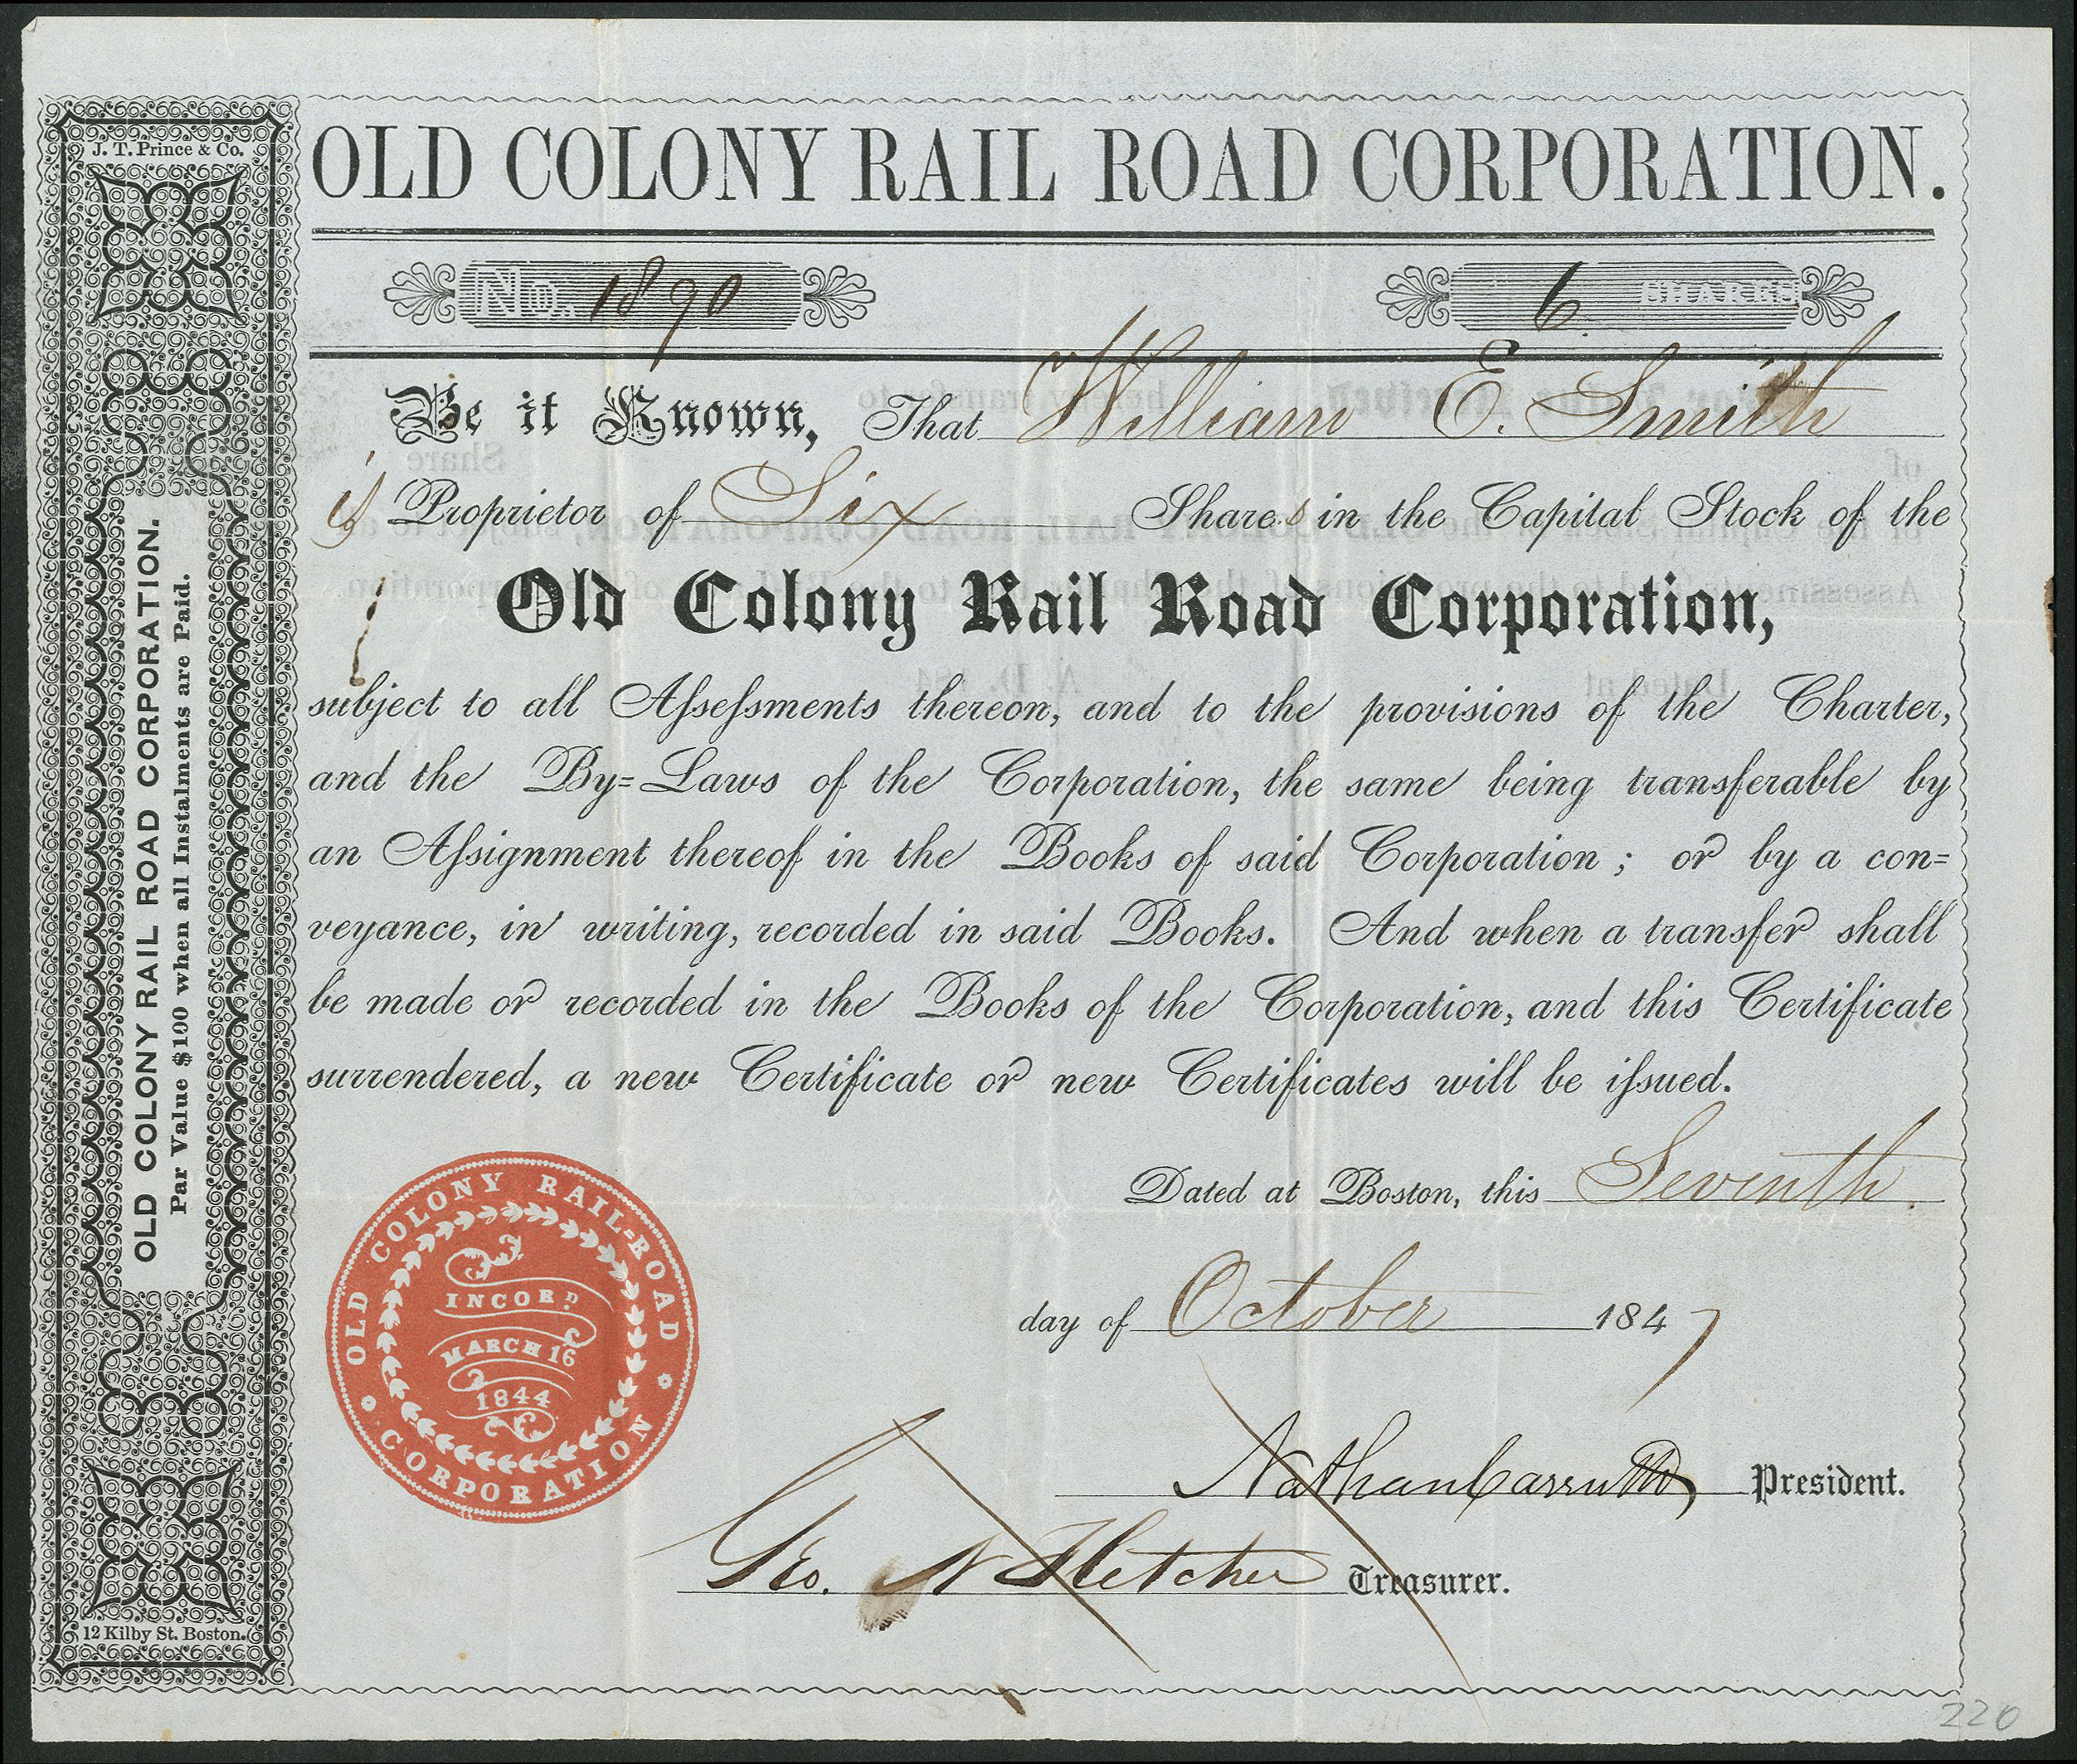 J. T. Prince & Co.
OLD COLONY RAIL ROAD CORPORATION.
Par Value $100 when all Instalments are Paid.
12 Kilby St. Boston.
OLD COLONY RAIL ROAD CORPORATION.
No. 1890 6 SHARES
Be it Known, That William E. Smith
is Proprietor of Six Shares in the Capital Stock of the
Old Colony Rail Road Corporation,
subject to all Aſseſsments thereon, and to the provisions of the Charter,
and the By=Laws of the Corporation, the same being transferable by
an Aſsignment thereof in the Books of said Corporation; or by a con=
veyance, in writing, recorded in said Books. And when a transfer shall
be made or recorded in the Books of the Corporation, and this Certificate
surrendered, a new Certificate or new Certificates will be iſsued.
Dated at Boston, this Seventh
day of October 1847
Nathan Carruth President.
Geo. N Fletcher Treasurer.
OLD COLONY RAIL=ROAD
CORPORATION
INCORD.
MARCH 16
1844
220